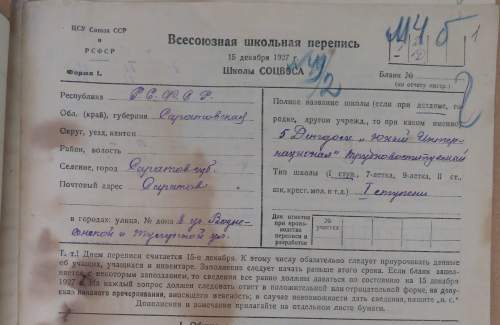 ЦСУ Союза ССР
и
РСФСР
Всесоюзная школьная перепись
15 декабря 1927 г.
Школы СОЦВОСА
Форма 1.
Бланк №
(по отчету инстр.)
Республика Р.С.Ф.С.Р.
Обл. (край), губерния Саратовская
Округ, уезд, кантон
Район, волость
Селение, город Саратов губ.
Почтовый адрес Саратов
в городах: улица, № дома в ул. Возне-
сенской и ул.
Полное название школы (если при детдоме, го-
родке, другом учрежд., то при каком именно)
5 Детдом „Юный Интер-
национал"
Тип школы (I ступ., 7-летка, 9-летка, II ст.,
шк. крест. мол. и т.д.) I ступени
Для отметок
при произ-
водстве
переписи и
разработке
№
участка
Т. т.! Днем переписи считается 15-е декабря. К этому числу обязательно следует приурочивать данные
об учащих, учащихся и инвентаре. Заполнение следует начать раньше этого срока. Если бланк запол-
няется с некоторым запозданием, то сведения все равно должны даваться по состоянию на 15 декабря
1927 г. На каждый вопрос должен следовать ответ в положительной или отрицательной форме, на до-
пускал никакого прочеркивания, вносящего неясность; в случае невозможности дать сведения, пишите „н. с."
Дополнения и замечания прилагайте на отдельном листе бумаги.